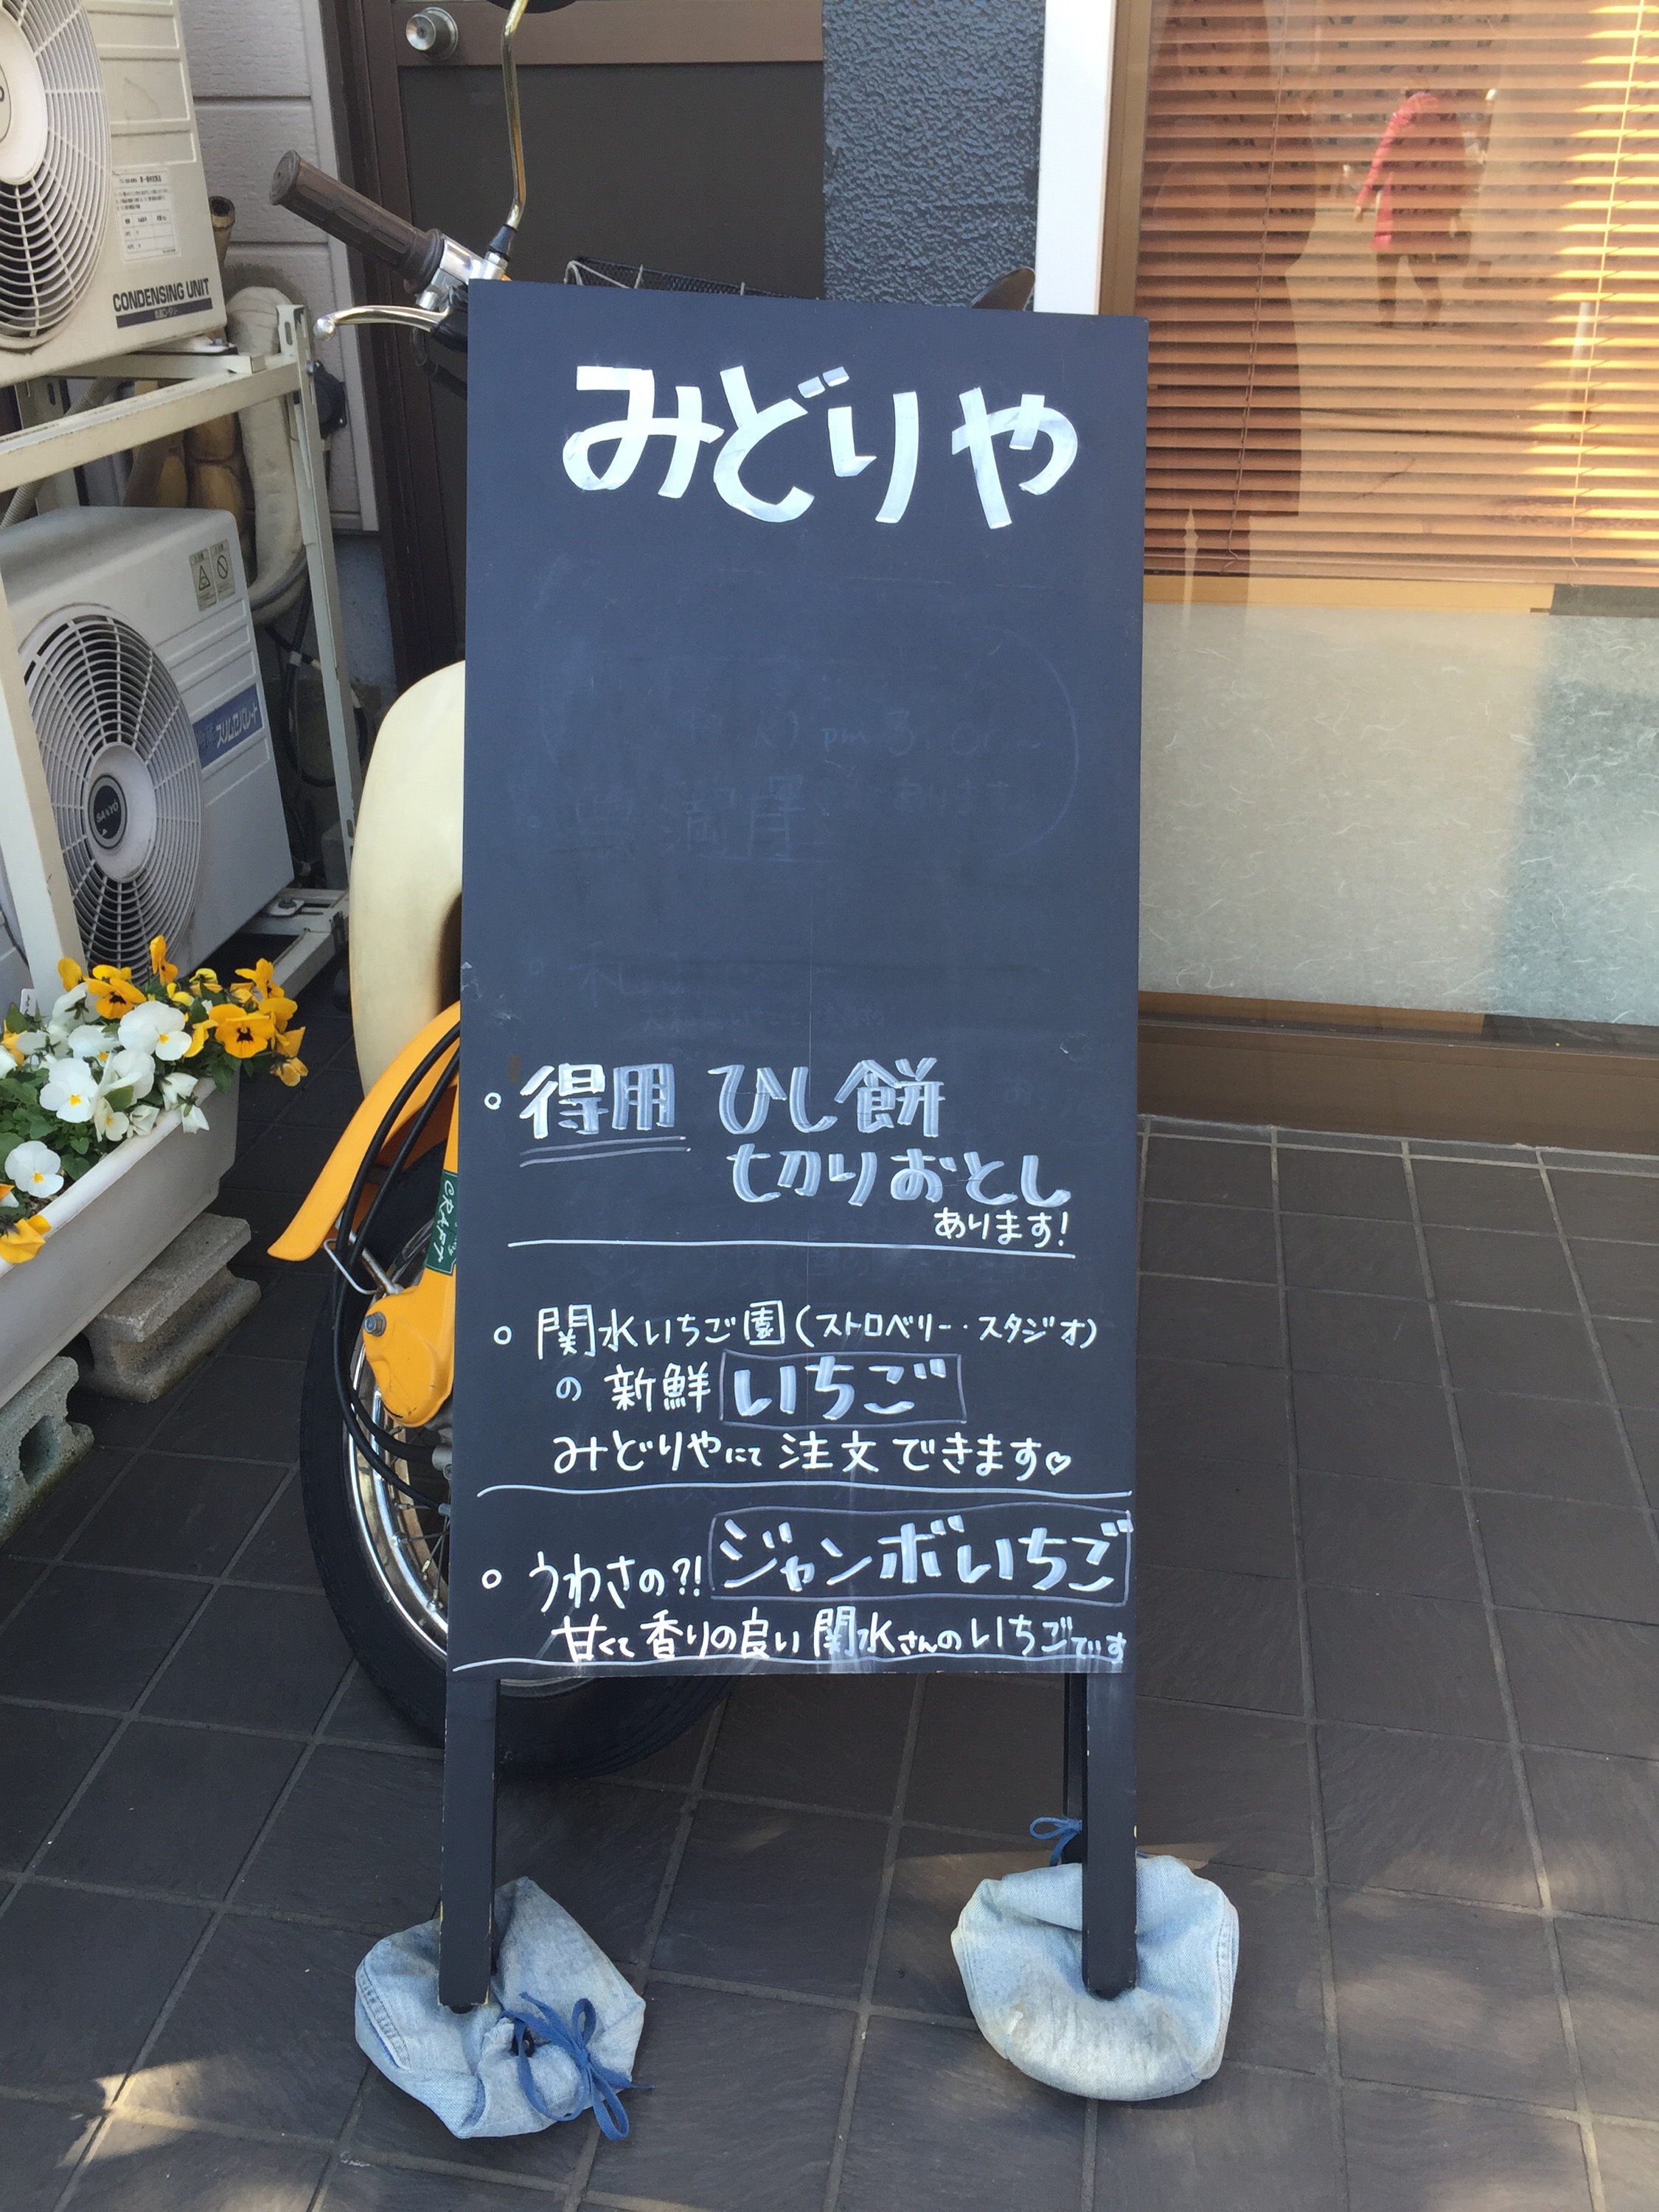 CONDENSING UNIT
SANYO
みどりや
pm 3:00〜
満月
○得用 ひし餅
切りおとし
あります!
○関水いちご園(ストロベリー・スタジオ)
の新鮮 いちご
みどりやにて 注文できます♡
○うわさの?!ジャンボいちご
甘くて香りの良い関水さんのいちごです
CRAFT